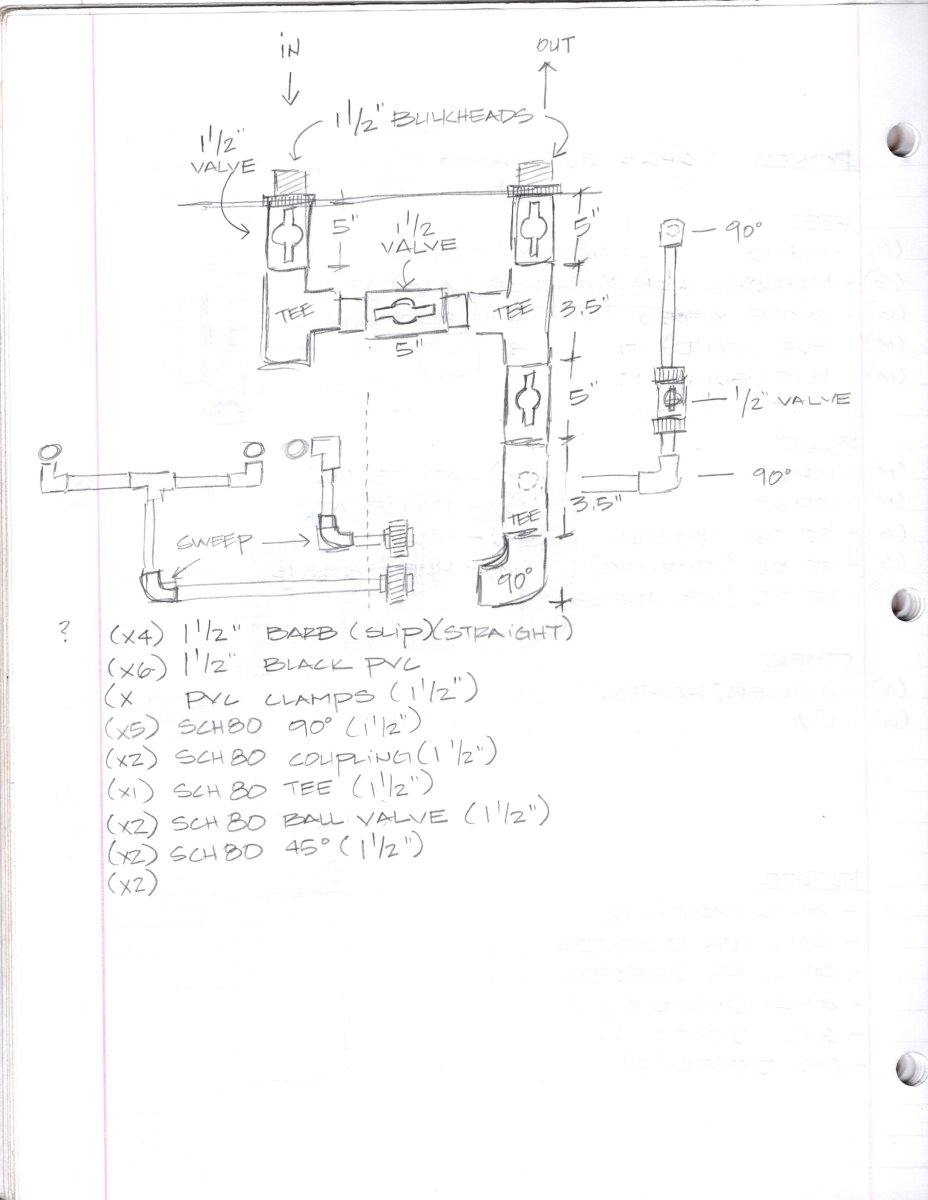 IN
OUT
1 1/2" BULKHEADS
1 1/2"
VALVE
5"
1 1/2
VALVE
5"
90°
TEE
TEE
3.5"
5"
5"
1/2" VALVE
90°
3.5"
SWEEP
TEE
90°
? (x4) 1 1/2" BARB (SLIP)(STRAIGHT)
(x6) 1 1/2" BLACK PVC
(x PVC CLAMPS (1 1/2")
(x5) SCH80 90° (1 1/2")
(x2) SCH80 COUPLING (1 1/2")
(x1) SCH80 TEE (1 1/2")
(x2) SCH80 BALL VALVE (1 1/2")
(x2) SCH80 45° (1 1/2")
(x2)